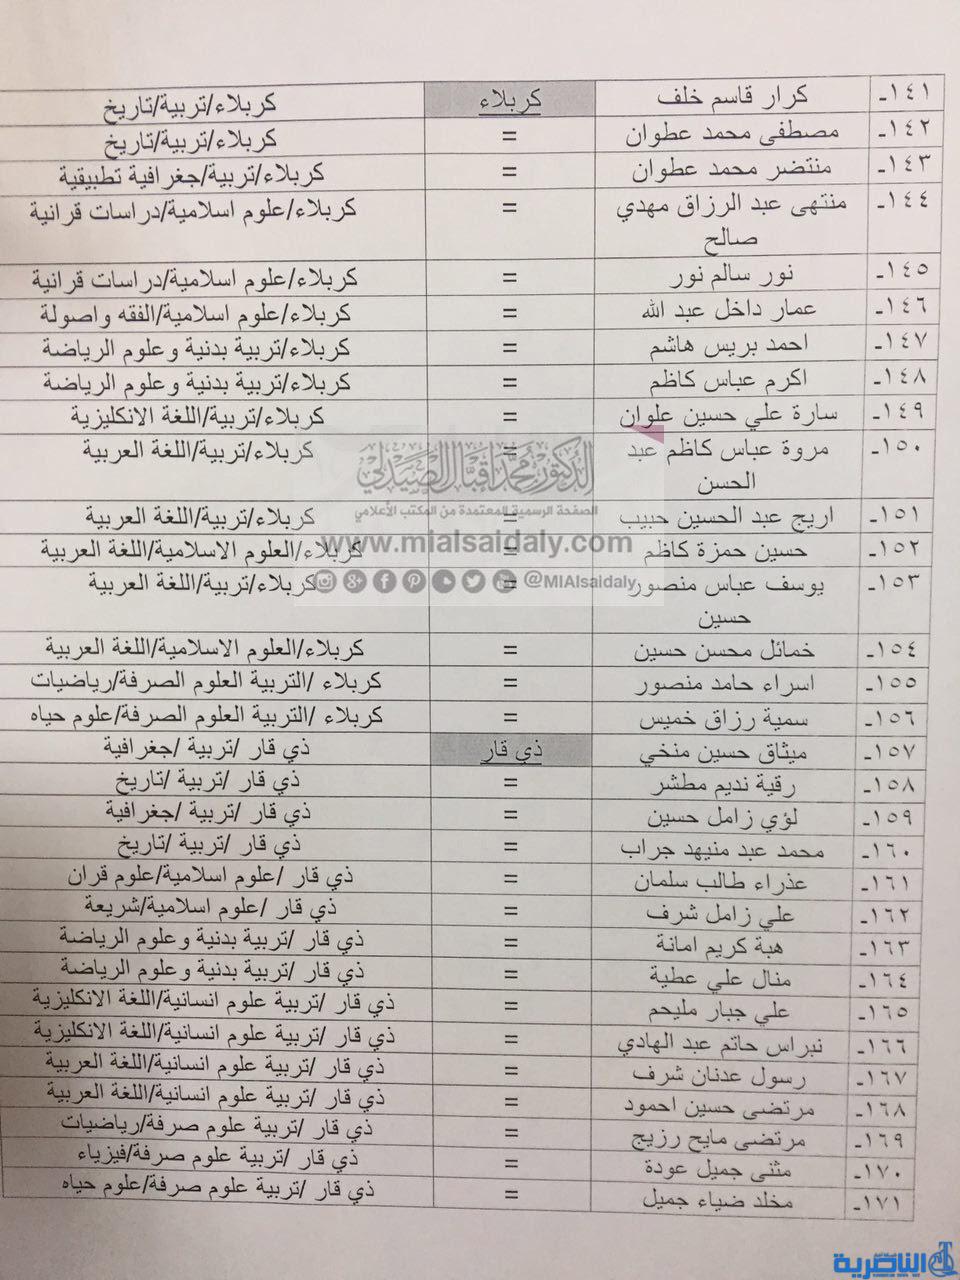 ١٤١ـ كرار قاسم خلف كربلاء كربلاء/تربية/تاريخ
١٤٢ـ مصطفى محمد عطوان = كربلاء/تربية/تاريخ
١٤٣ـ منتضر محمد عطوان = كربلاء/تربية/جغرافية تطبيقية
١٤٤ـ منتهى عبد الرزاق مهدي = كربلاء/علوم اسلامية/دراسات قرانية
صالح
١٤٥ـ نور سالم نور = كربلاء/علوم اسلامية/دراسات قرانية
١٤٦ـ عمار داخل عبد الله = كربلاء/علوم اسلامية/الفقه واصولة
١٤٧ـ احمد بريس هاشم = كربلاء/تربية بدنية وعلوم الرياضة
١٤٨ـ اكرم عباس كاظم = كربلاء/تربية بدنية وعلوم الرياضة
١٤٩ـ سارة علي حسين علوان = كربلاء/تربية/اللغة الانكليزية
١٥٠ـ مروة عباس كاظم عبد كربلاء/تربية/اللغة العربية
الحسن
الدكتور محمد اقبال الصيدلي
الصفحة الرسمية المعتمدة من المكتب الأعلامي
١٥١ـ اريج عبد الحسين حبيب = كربلاء/تربية/اللغة العربية
www.mialsaidaly.com
١٥٢ـ حسين حمزة كاظم = كربلاء/العلوم الاسلامية/اللغة العربية
@MIAlsaidaly
١٥٣ـ يوسف عباس منصور = كربلاء/تربية/اللغة العربية
حسين
١٥٤ـ خمائل محسن حسين = كربلاء/العلوم الاسلامية/اللغة العربية
١٥٥ـ اسراء حامد منصور = كربلاء /التربية العلوم الصرفة/رياضيات
١٥٦ـ سمية رزاق خميس = كربلاء /التربية العلوم الصرفة/علوم حياه
١٥٧ـ ميثاق حسين منخي ذي قار ذي قار /تربية /جغرافية
١٥٨ـ رقية نديم مطشر = ذي قار /تربية /تاريخ
١٥٩ـ لؤي زامل حسين = ذي قار /تربية /جغرافية
١٦٠ـ محمد عبد منيهد جراب = ذي قار /تربية /تاريخ
١٦١ـ عذراء طالب سلمان = ذي قار /علوم اسلامية/علوم قران
١٦٢ـ علي زامل شرف = ذي قار /علوم اسلامية/شريعة
١٦٣ـ هبة كريم امانة = ذي قار /تربية بدنية وعلوم الرياضة
١٦٤ـ منال علي عطية = ذي قار /تربية بدنية وعلوم الرياضة
١٦٥ـ علي جبار مليحم = ذي قار /تربية علوم انسانية/اللغة الانكليزية
١٦٦ـ نبراس حاتم عبد الهادي = ذي قار /تربية علوم انسانية/اللغة الانكليزية
١٦٧ـ رسول عدنان شرف = ذي قار /تربية علوم انسانية/اللغة العربية
١٦٨ـ مرتضى حسين احمود = ذي قار /تربية علوم انسانية/اللغة العربية
١٦٩ـ مرتضى مايح رزيج = ذي قار /تربية علوم صرفة/رياضيات
١٧٠ـ مثنى جميل عودة = ذي قار /تربية علوم صرفة/فيزياء
١٧١ـ مخلد ضياء جميل = ذي قار /تربية علوم صرفة/علوم حياه
الناصرية